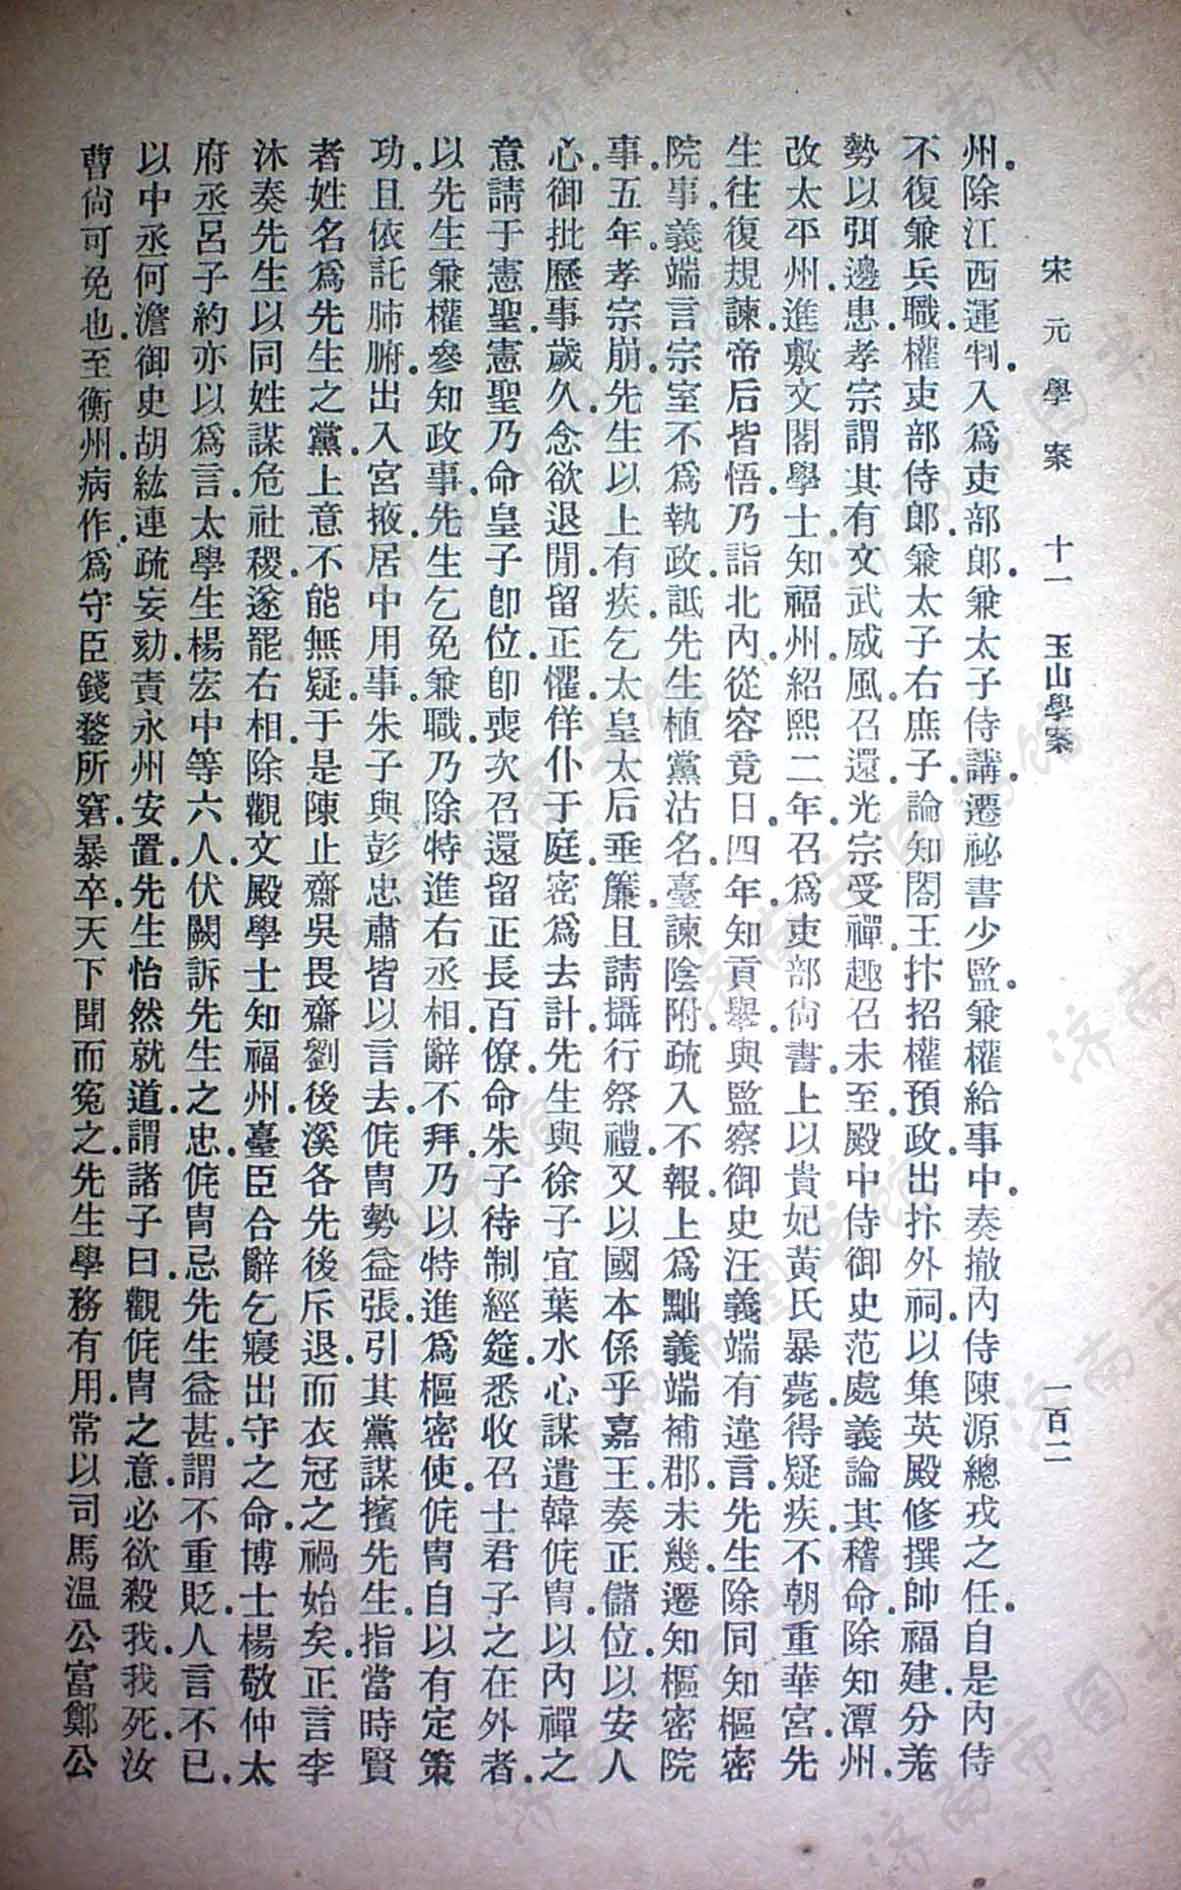 宋元學案 十一 玉山學案 一百二
州。除江西運判。入爲吏部郎。兼太子侍講。遷祕書少監。兼權給事中。奏撤內侍陳源總戎之任。自是內侍
不復兼兵職。權吏部侍郎。兼太子右庶子。論知閤王抃招權預政。出抃外祠。以集英殿修撰帥福建。分羗
勢以弭邊患。孝宗謂其有文武威風。召還。光宗受禪。趣召未至。殿中侍御史范處義論其稽命。除知潭州。
改太平州。進敷文閣學士。知福州。紹熙二年。召爲吏部尙書。上以貴妃黃氏暴薨。得疑疾。不朝重華宮。先
生往復規諫。帝后皆悟。乃詣北內。從容竟日。四年。知貢舉。與監察御史汪義端有違言。先生除同知樞密
院事。義端言宗室不爲執政。詆先生植黨沽名。臺諫陰附。疏入不報。上爲黜義端補郡。未幾。遷知樞密院
事。五年。孝宗崩。先生以上有疾。乞太皇太后垂簾。且請攝行祭禮。又以國本係乎嘉王。奏正儲位。以安人
心。御批歷事歲久。念欲退閒。留正懼。佯仆于庭。密爲去計。先生與徐子宜葉水心謀。遣韓侂冑以內禪之
意請于憲聖。憲聖乃命皇子卽位。卽喪次召還留正長百僚。命朱子待制經筵。悉收召士君子之在外者。
以先生兼權參知政事。先生乞免兼職。乃除特進右丞相。辭不拜。乃以特進爲樞密使。侂冑自以有定策
功。且依託肺腑。出入宮掖。居中用事。朱子與彭忠肅皆以言去。侂冑勢益張。引其黨謀擯先生。指當時賢
者姓名爲先生之黨。上意不能無疑。于是陳止齋吳畏齋劉後溪各先後斥退。而衣冠之禍始矣。正言李
沐奏先生以同姓謀危社稷。遂罷右相。除觀文殿學士知福州。臺臣合辭乞寢出守之命。博士楊敬仲太
府丞呂子約亦以爲言。太學生楊宏中等六人。伏闕訴先生之忠。侂冑忌先生益甚。謂不重貶。人言不已。
以中丞何澹御史胡紘連疏妄劾。責永州安置。先生怡然就道。謂諸子曰。觀侂冑之意。必欲殺我。我死。汝
曹尙可免也。至衡州。病作。爲守臣錢鍪所窘。暴卒。天下聞而寃之。先生學務有用。常以司馬溫公富鄭公